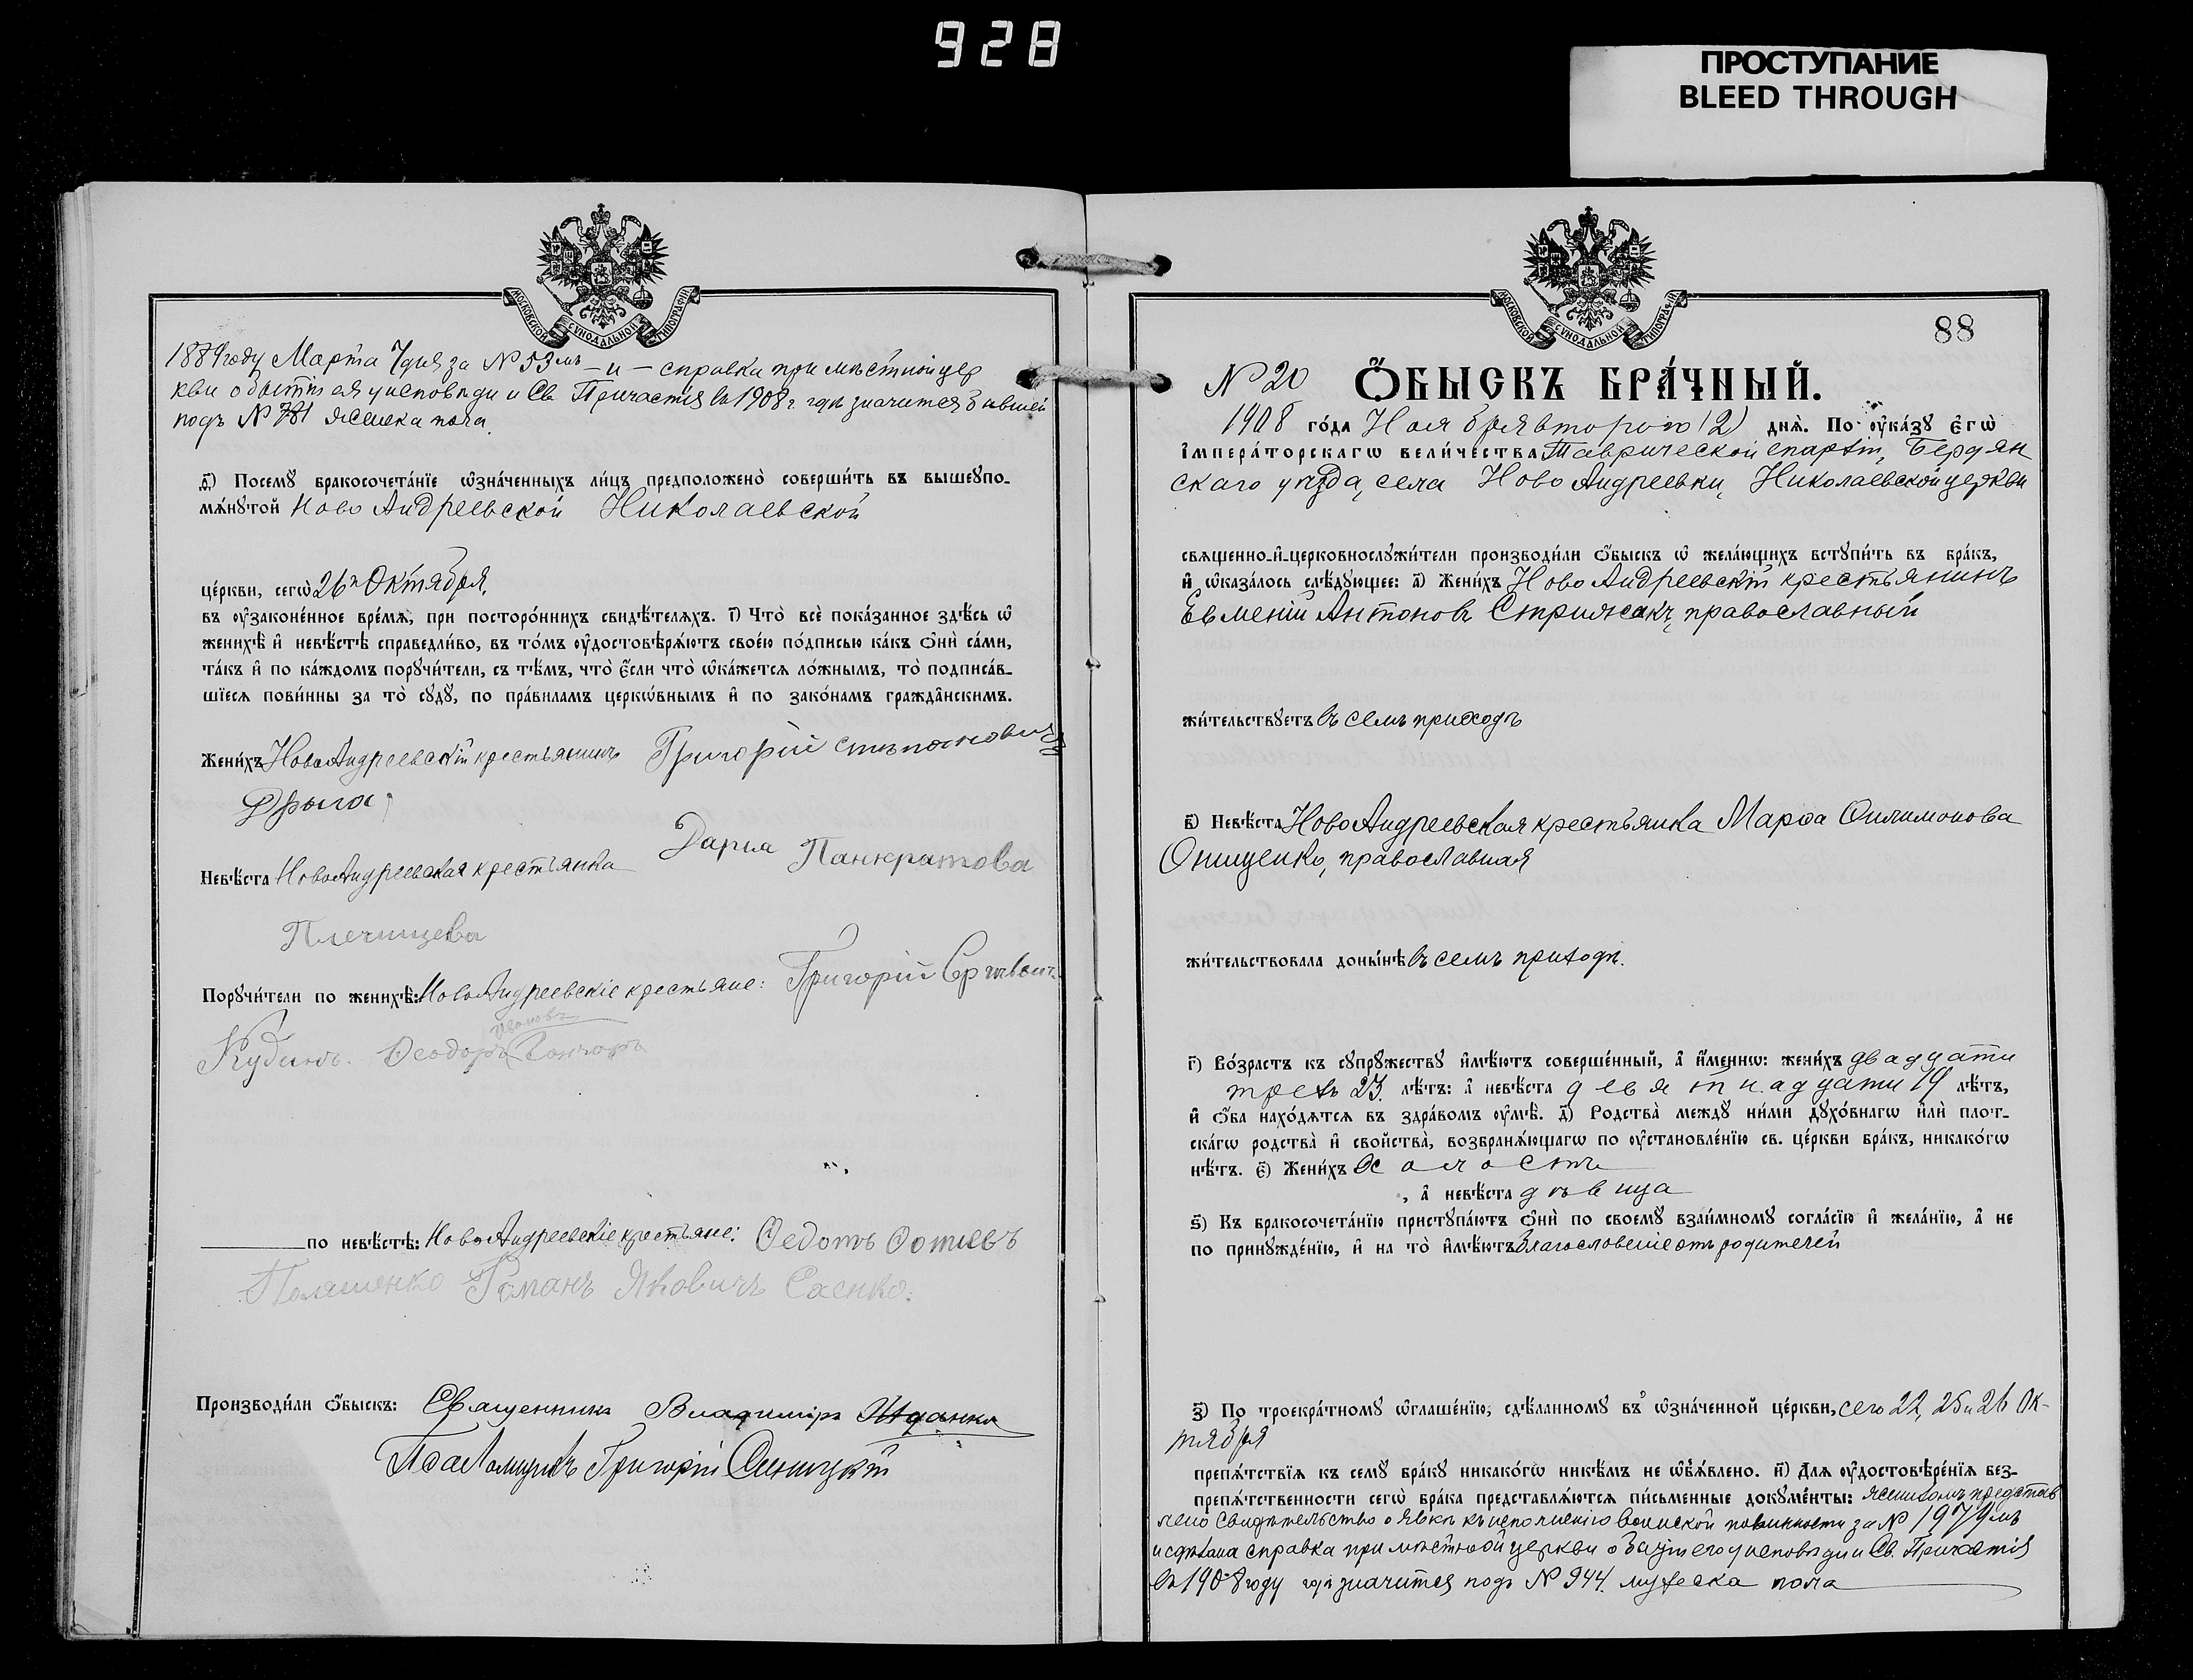 928
ПРОСТУПАНИЕ
BLEED THROUGH
МОСКОВСКОЙ СѴНОДАЛЬНОЙ ТИПОГРАФІИ
1889 году Марта 7 дня за № 53мъ – и – справка при мѣстной цер
кви о бытіи ея у исповѣди и Св. Причастія въ 1908 г. гдѣ значится бывшей
подъ № 781 женска пола.
д҃і) Посемꙋ бракосочета́нїе ѡ҆зна́ченныхъ ли́цъ предположено̀ соверши́ть въ вышеꙋпо-
мѧ́нꙋтой Ново Андреевской Николаевской
це́ркви, сегѡ̀ 26го Октября,
въ ᲂу҆законе́нное вре́мѧ, при посторо́ннихъ свидѣ́телѧхъ. і҃) Что̀ всѐ пока́занное здѣ́сь ѡ҆
женихѣ̀ и҆ невѣ́стѣ справедли́во, въ то́мъ ᲂу҆достовѣрѧ́ютъ свое́ю по́дписью ка́къ ѻ҆нѝ са́ми,
та́къ и҆ по ка́ждомъ порꙋчи́тели, съ тѣ́мъ, что̀ є҆́сли что̀ ѡ҆ка́жется ло́жнымъ, то̀ подписа́в-
шїеся пови́нны за то̀ сꙋдꙋ̀, по пра́виламъ церкѡ́внымъ и҆ по зако́намъ гражда̂нскимъ.
Жени́хъ Ново Андреевскій крестьянинъ Григорій Стѣпановичъ
Дрыга
Невѣ́ста Ново Андреевская крестьянка Дарія Панкратова
Плечищева
Порꙋчи́тели по женихѣ̀: Ново Андреевскіе крестьяне: Григорій Сргѣвич
Ивановъ
Кудинъ. Ѳеодоръ Гончаръ
по невѣ́стѣ: Ново Андреевскіе крестьяне: Ѳедотъ Ѳотіевъ
Романъ Яковичъ Саенко.
Производи́ли ѻ҆́быскъ: Священникъ Владиміръ
Псаломщикъ Григорій Синицкій
МОСКОВСКОЙ СѴНОДАЛЬНОЙ ТИПОГРАФІИ
88
№ 20 Ѻ҆́БЫСКЪ БРА́ЧНЫЙ.
1908 го́да Ноября второго (2) днѧ̀. По ᲂу҆ка́зꙋ є҆гѡ̀
і҆мпера́торскагѡ вели́чества Таврической епархіи, Бердян
скаго уѣзда, села Ново Андреевки, Николаевской церкви
священно-и҆-церковнослꙋжи́тели производи́ли ѻ҆́быскъ ѡ҆ жела́ющихъ встꙋпи́ть въ бра́къ,
и҆ ѡ҆каза́лось слѣ́дꙋющее: а҃) Жени́хъ Ново Андреевскій крестьянинъ
Евменій Антоновъ Стрижакъ, православный
жи́тельствꙋетъ въ семъ приходѣ
в҃) Невѣ́ста Ново Андреевская крестьянка Марѳа Филимонова
Онищенко, православная
жи́тельствовала доны́нѣ въ семъ приходѣ.
г҃) Во́зрастъ къ сꙋпрꙋ́жествꙋ и҆мѣ́ютъ соверше́нный, а҆ и҆́меннѡ: жени́хъ двадцати
трехъ 23. лѣ́тъ: а҆ невѣ́ста девятнадцати 19 лѣ́тъ,
и҆ ѻ҆́ба нахо́дятся въ здра́вомъ ᲂу҆мѣ̀. д҃) Родства̀ междꙋ ни́ми дꙋхо́внагѡ и҆лѝ плот-
ска́гѡ родства̀ и҆ свойства̀, возбранѧ́ющагѡ по ᲂу҆становле́нїю св. це́ркви бра́къ, никако́гѡ
нѣ́тъ. є҃) Жени́хъ холостъ
, а҆ невѣ́ста дѣвица
ѕ҃) Къ бракосочета́нїю пристꙋпа́ютъ ѻ҆нѝ по своемꙋ̀ взаи́мномꙋ согла́сїю и҆ жела́нїю, а҆ не
по принꙋжде́нїю, и҆ на то̀ и҆мѣ́ютъ благословеніе отъ родителей
з҃) По троекра́тномꙋ ѡ҆глаше́нїю, сдѣ́ланномꙋ въ ѡ҆зна́ченной це́ркви, сего 22, 25 и 26 Ок-
тября
препѧ́тствїѧ къ семꙋ̀ бра́кꙋ никако́гѡ никѣ́мъ не ѡ҆б̾ѧ́влено. и҃) Для ᲂу҆достовѣре́нїѧ без-
препѧ́тственности сегѡ̀ бра́ка представлѧ́ются пи́сьменные докꙋме́нты: женихомъ представ
лено свидѣтельство о явкѣ къ исполненію воинской повинности за № 1979мъ
и сдѣлана справка при мѣстной церкви о бытіи его у исповѣди и Св. Причастія
въ 1908 году гдѣ значится подъ № 944. мужеска пола